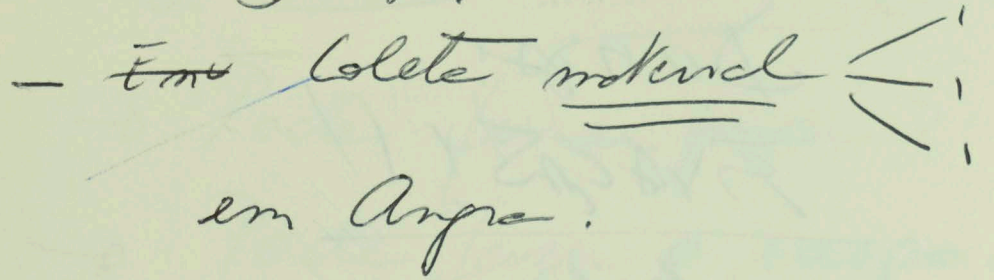 - Coleta material
em Angra.